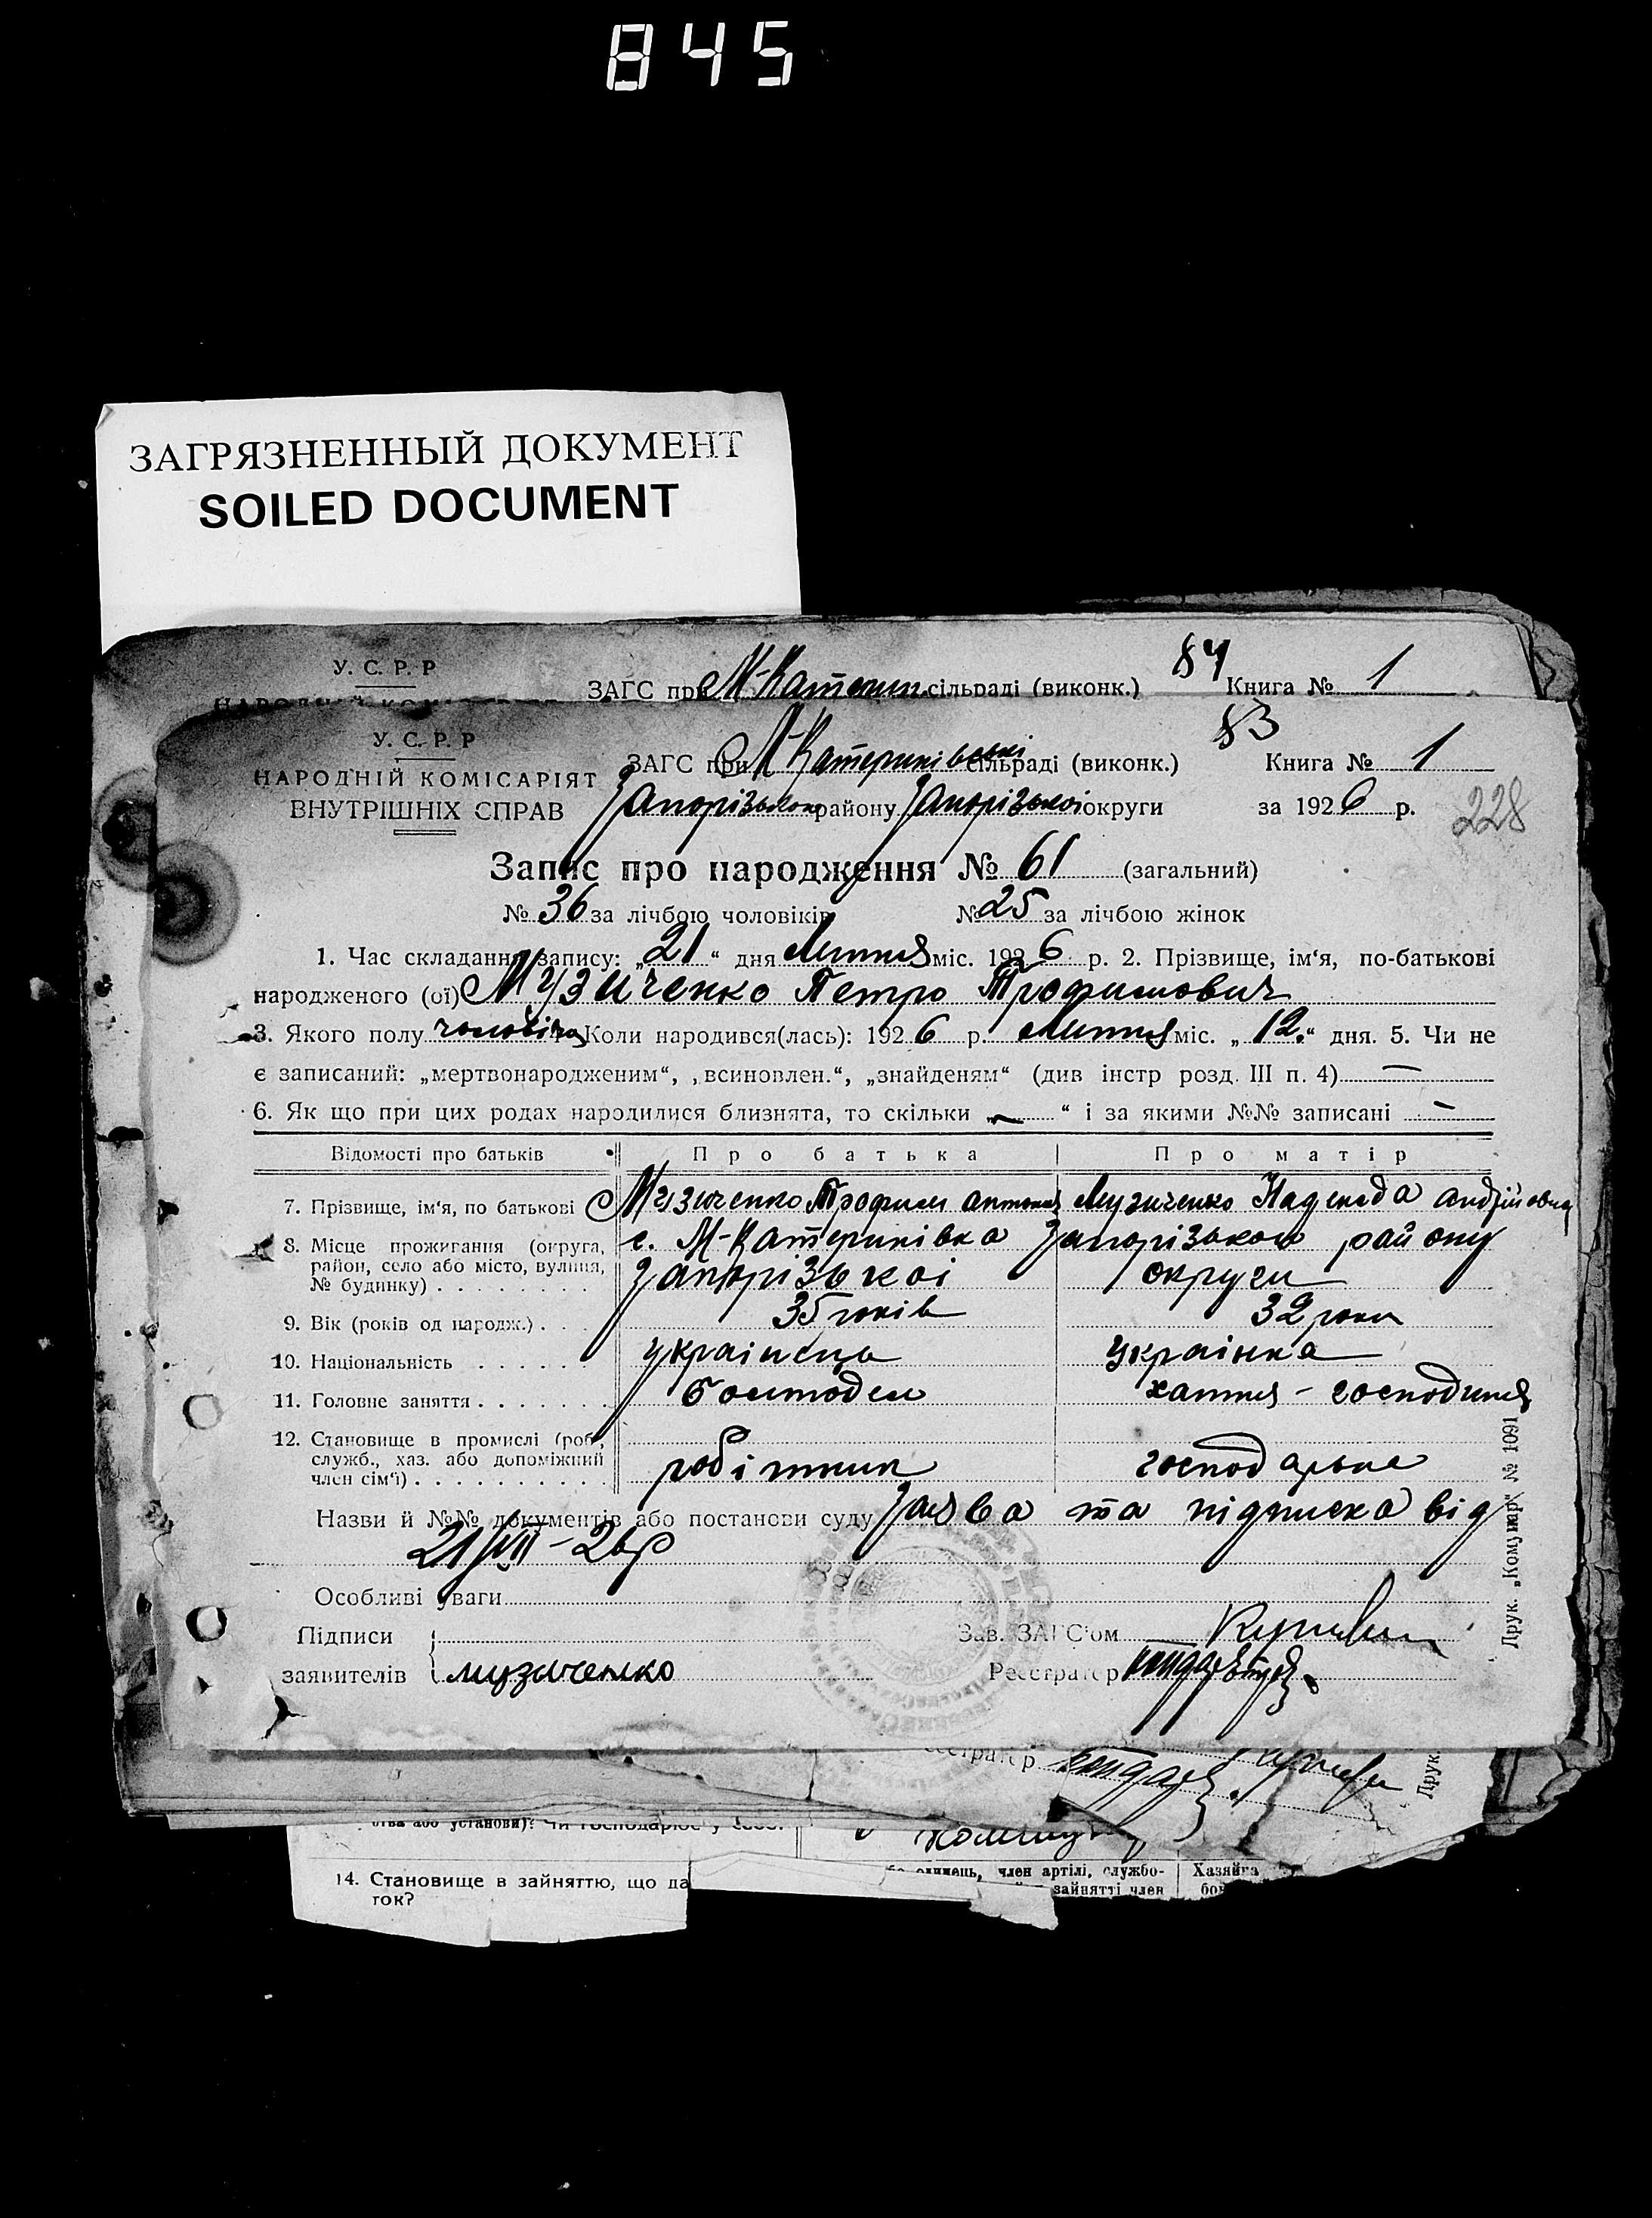 845
ЗАГРЯЗНЕННЫЙ ДОКУМЕНТ
SOILED DOCUMENT
У. С. Р. Р
ЗАГС при М-Катерин. сільраді (виконк.) 84 Книга № 1
У. С. Р. Р
НАРОДНІЙ КОМІСАРІЯТ
ВНУТРІШНІХ СПРАВ
ЗАГС при М-Катеринівській сільраді (виконк.) 83 Книга № 1
Запорізького району Запорізької округи за 1926 р. 228
Запис про народження № 61 (загальний)
№ 36 за лічбою чоловіків № 25 за лічбою жінок
1. Час складання запису: „21“ дня Липня міс. 1926 р. 2. Прізвище, ім‘я, по-батькові
народженого (ої) Музиченко Петро Трофимович
3. Якого полу чоловіча Коли народився(лась): 1926 р. Липня міс. „12.“ дня. 5. Чи не
є записаний: „мертвонародженим“, „всиновлен.“, „знайденям“ (див інстр розд. III п. 4) —
6. Як що при цих родах народилися близнята, то скільки „—“ і за якими №№ записані —
Відомості про батьків Про батька Про матір
7. Прізвище, ім‘я, по батькові Музиченко Трофим Музиченко Надежда Андрійовна
8. Місце прожигання (округа, район, село або місто, вулиця, № будинку) с. М-Катеринівка Запорізького району
Запорізькоі округи
9. Вік (років од народж.) 35 років 32 роки
10. Національність украінець украінка
11. Головне заняття хатня - господиня
12. Становище в промислі (роб., служб., хаз. або допоміжний член сім‘ї) робітник
Назви й №№ документів або постанови суду Заява та підписка від
21/VII - 26 р
Особливі уваги
Підписи
заявителів музиченко
Зав. ЗАГС‘ом
Реєстратор
Друк. „Комунар“ № 1091
Друк.
14. Становище в зайняттю, що да
ток?
член артілі, службо-
зайнятті член
Хазяїна